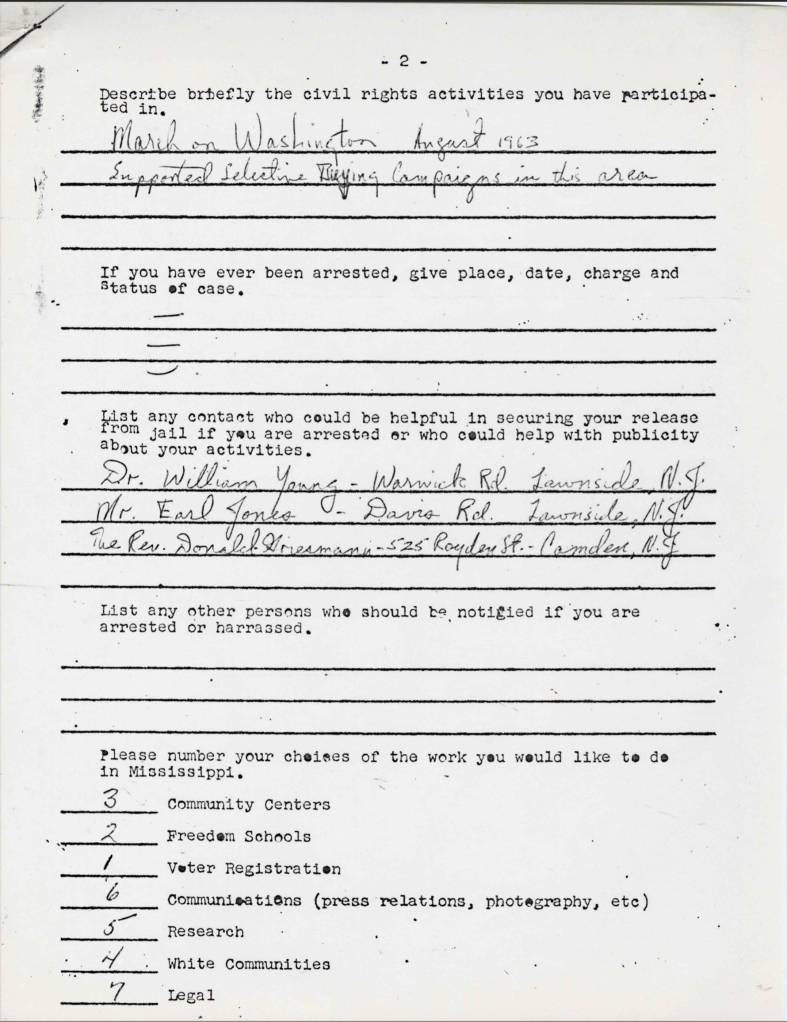 - 2 -
Describe briefly the civil rights activities you have participa-
ted in.
March on Washington August 1963
Supported Selective Buying Campaigns in this area
If you have ever been arrested, give place, date, charge and
status of case.
—
—
—
List any contact who could be helpful in securing your release
from jail if you are arrested or who could help with publicity
about your activities.
Dr. William Young - Warwick Rd. Lawnside, N.J.
Mr. Earl Jones - Davis Rd. Lawnside, N.J.
The Rev. Donald Griesmann - 525 Royden St. - Camden, N.J
List any other persons who should be notified if you are
arrested or harrassed.
Please number your choises of the work you would like to do
in Mississippi.
3 Community Centers
2 Freedom Schools
1 Voter Registration
6 Communications (press relations, photography, etc)
5 Research
4 White Communities
7 Legal